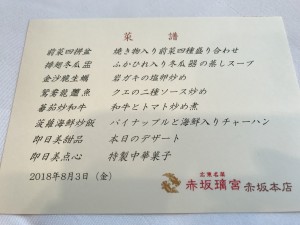 菜 譜
前菜四拼盆 焼き物入り前菜四種盛り合わせ
排翅冬瓜盅 ふかひれ入り冬瓜器の蒸しスープ
金沙脆生蠔 岩ガキの塩卵炒め
鴛鴦龍躉魚 クエの二種ソース炒め
蕃茄炒和牛 和牛とトマト炒め煮
菠蘿海鮮炒飯 パイナップルと海鮮入りチャーハン
即日美甜品 本日のデザート
即日美点心 特製中華菓子
2018年8月3日(金)
広東名菜
赤坂璃宮 赤坂本店